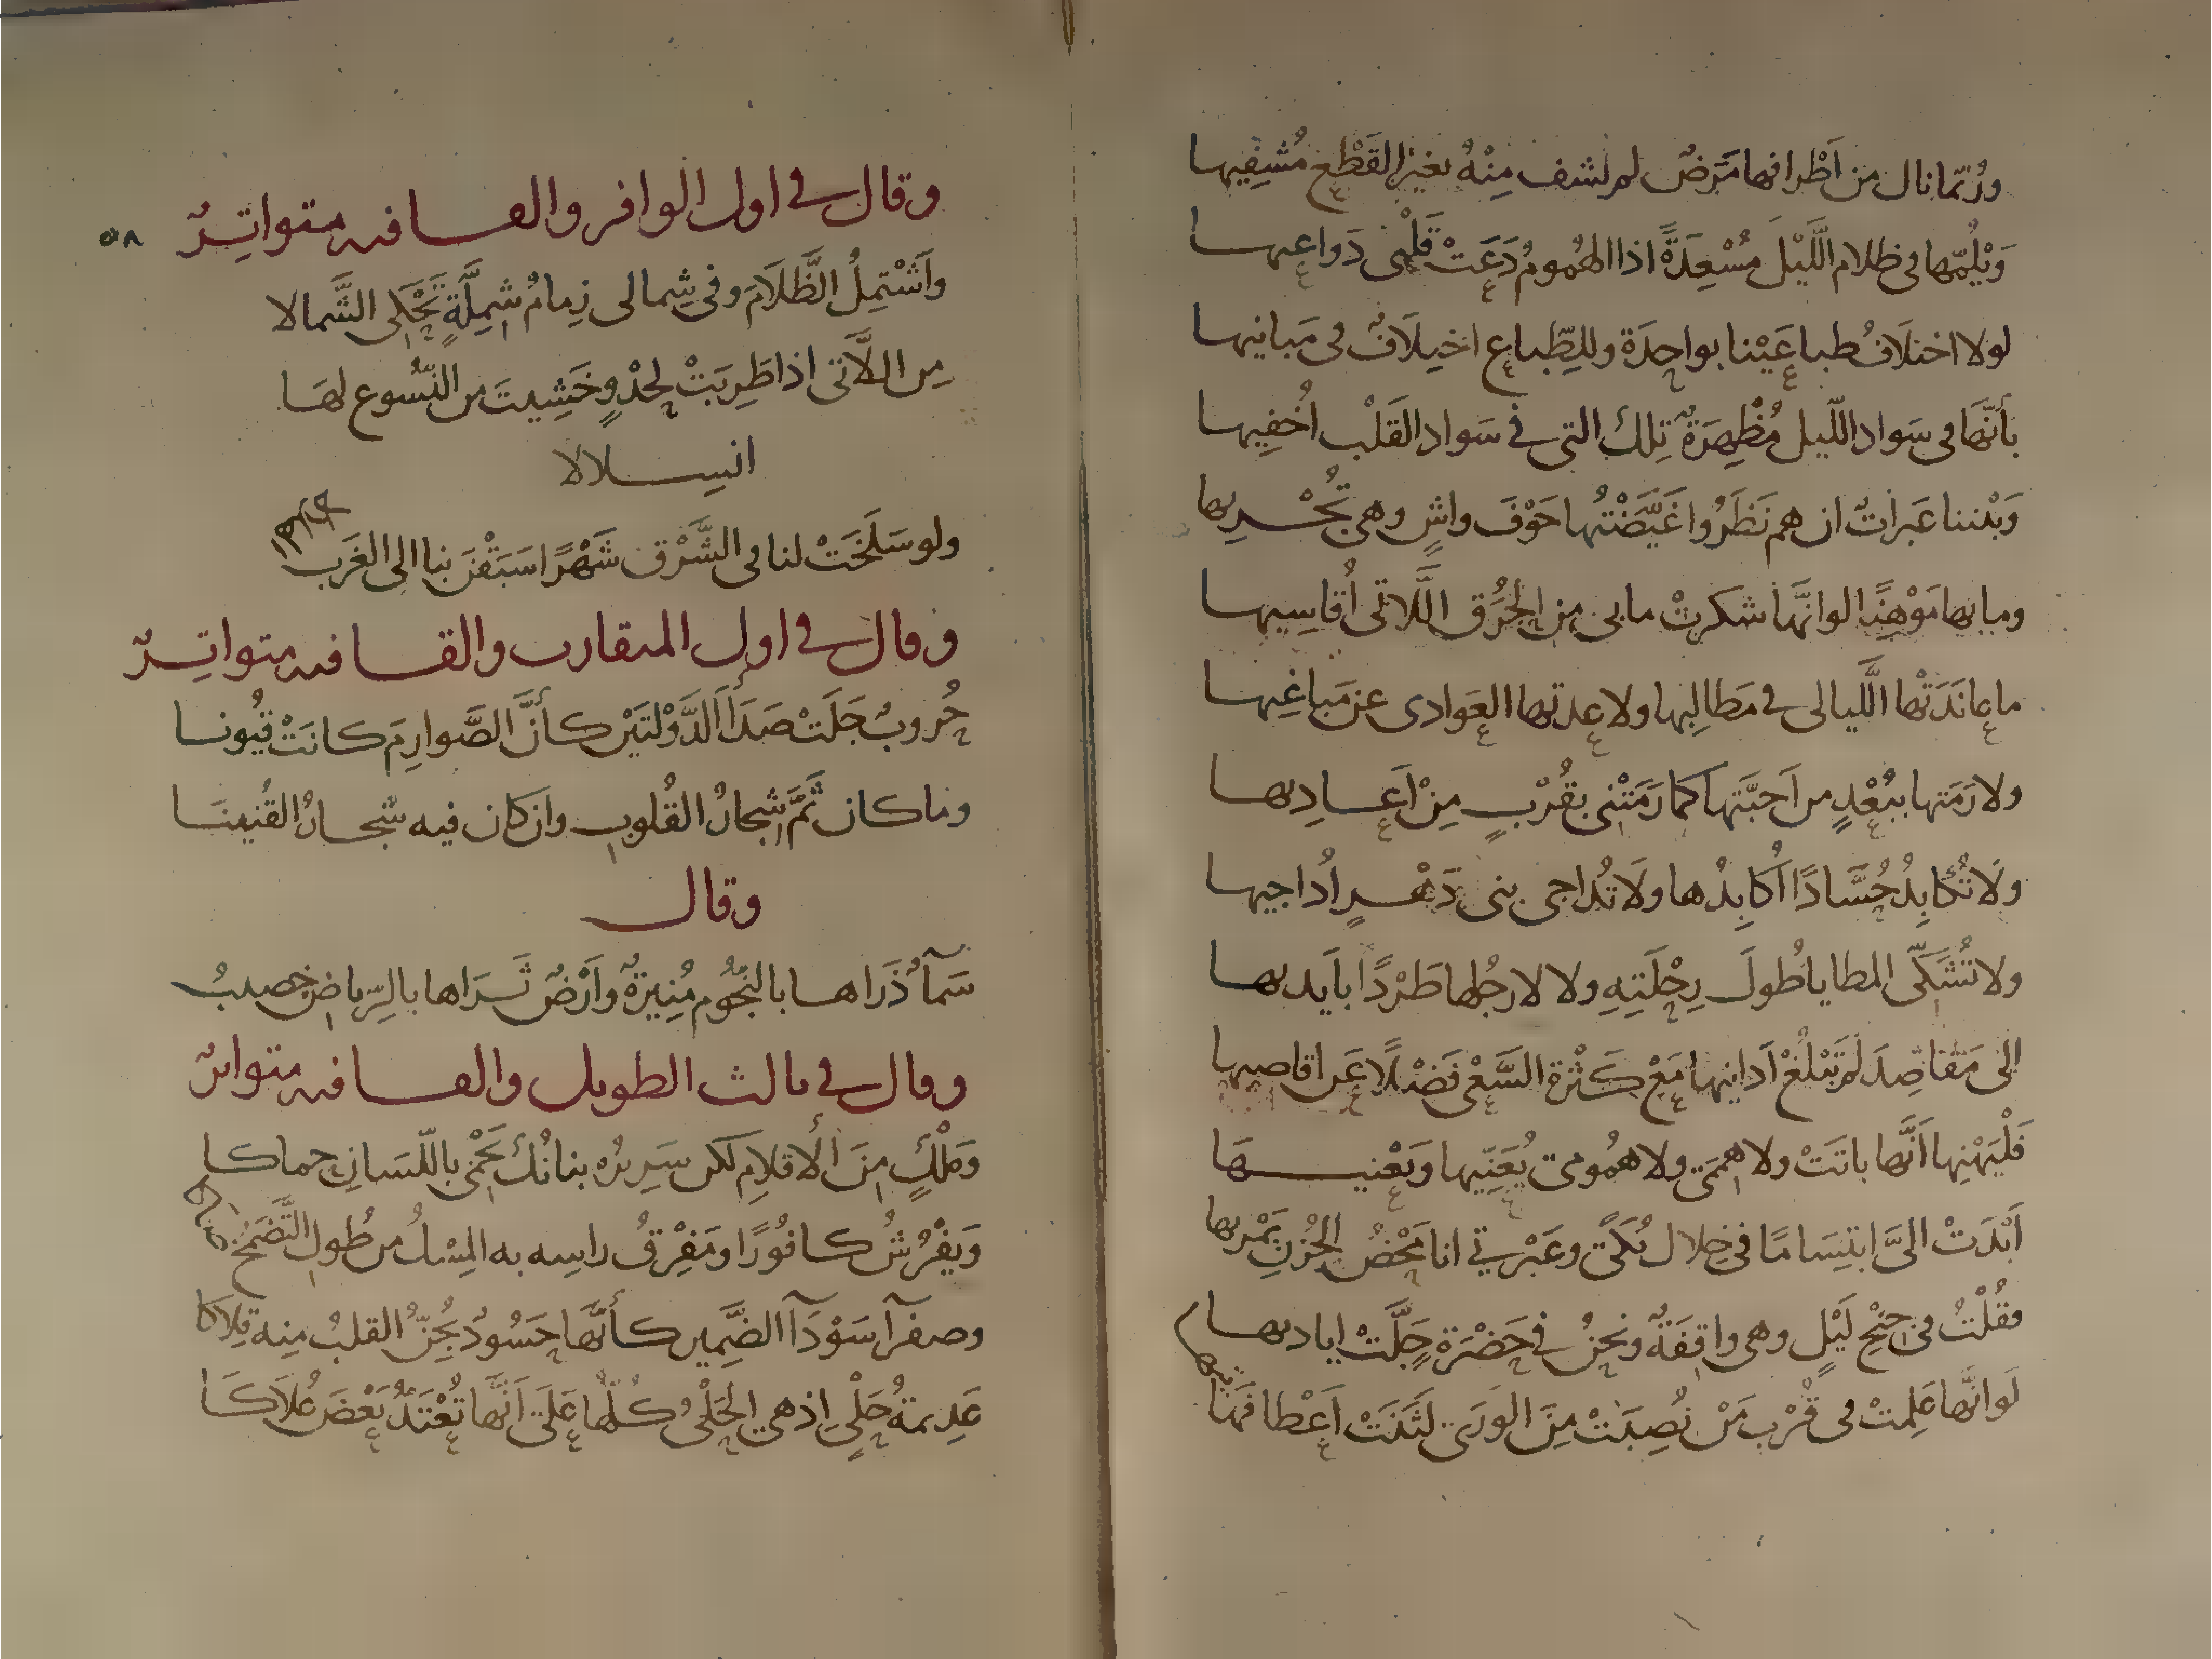 ورُبّما نال من اَطْرافها مَرَضٌ لم يشف مِنْهُ بغيرِ القَطْعِ مُشفِيها
وَيْلُمّها في ظلام اللَّيْلِ مُسْعِدَةً اذا الهُمومُ دَعَتْ قَلْبى دَواعيها
لولا اختلافُ طباعَيْنا بواحِدَة وللطِّباعِ اختِلافٌ فى مَبانيها
بأنَّها فى سَواد اللّيل مُظْهِرَةٌ تِلكَ التى في سَواد القَلْبِ اُخفِيها
وَبْيننا عَبَراتٌ ان هم نَظَرُوا غَيَّضْتُها خَوْفَ واشٍ وهى تُجْريها
وما بها مَوْهِنًا لو انَّها شكرتْ مابى من الحُرَق اللَّاتى أُقاسِيها
ما عانَدَتْها اللَّيالى في مَطالِبها ولا عدتها العَوادى عن مَباغِيها
ولا رَمَتها ببُعْدٍ من اَحبَّتها كما رَمَتْنى بقُرْبٍ مِنْ اَعاديها
ولا تُكابِدُ حُسَّادًا اُكابِدُها ولَا تُداجى بنى دَهْرٍ اُداجيها
ولا تُشَكّى المطايا طُولَ رِحْلَتِهِ ولا لارجُلها طَرْدًا بأَيديها
الى مَقاصِدَ لم تَبْلُغْ اَدانيها مَعْ كَثْرةِ السَّعْى فَضْلًا عن اقاصيها
فَلْيَهْنِها اَنَّها باتَتْ ولا هِمَمَى ولا هُمُومى يُعَنِّيها ويَعْنيها
اَبْدَتْ الىَّ ابتِسَامًا فى خِلال بُكًى وعَبْرتي انا مَحْضُ الحُزْنِ يَمْريها
فقُلْتُ فى جِنْحِ لَيْلٍ وهى واقِفَةٌ ونحنُ في حَضْرَةٍ جَلَّتْ اياديها
لَو انَّها عَلِمتْ فى قُرْبِ مَنْ نُصِبَتْ مِنَ الورَى لَثَنَتْ اَعْطافَها تيها
٥٨
وقال في اول الوافر والقافيه متواتِرٌ
واَشْتمِلُ الظَّلَامَ وفى شِمالى زِمامُ شِمِلَّةٍ تَحْكِى الشَّمالا
مِن اللَّاتى اذا طَرِبَتْ لحَدْوٍ خَشِيتَ من النُّسُوع لهَا
انسِلالا
ولو سَلَخَتْ لنا فى الشَّرْقِ شَهْرًا سَبَقْنَ بنا الى الغَرب
الهلالا
وقال في اول المتقارب والقافيه متواتِرٌ
حُروبٌ جَلَتْ صَدَأَ الدَّوْلتَيْن كأنَّ الصَّوارِمَ كانَتْ قيُونا
وما كان ثَمَّ شِجارُ القُلوبِ وان كان فيه شجارُ القُنِينَا
وقال
سَمآءٌ ذَراها بالنّجُوم مُنِيرَةٌ وأَرْضٌ ثَراها بالرِّياضِ خصيبُ
وقال في ثالث الطويل والقافيه متواترٌ
وَمَلْكٍ مِنَ الأقلامِ لكن سَرِيرُه بنانُكَ يَحْمى باللّسَانِ حماكا
وَيفْرُشُ كافُورًا ومَفْرِقُ راسِه به المِسْكُ من طُولِ التَّضَمُّخِ
صاكا
وصفرآ سَوْدَآ الضَّمِير كأنَّها حَسُودٌ يُجِنُّ القلبُ مِنه قِلاكا
عَدِيمةُ حَلْىٍ اِذ هي الحَلْىُ كُلُّها عَلَى اَنَّها تُعْتَدُّ بَعْضَ عُلاكَا